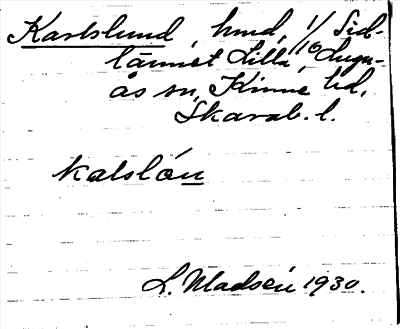 Karlslund, hmd, 1/16 Sid-
länmet Lilla, Lugn-
ås sn, Kinne hd,
Skarab. l.
kalslón
L. Madsén 1930.